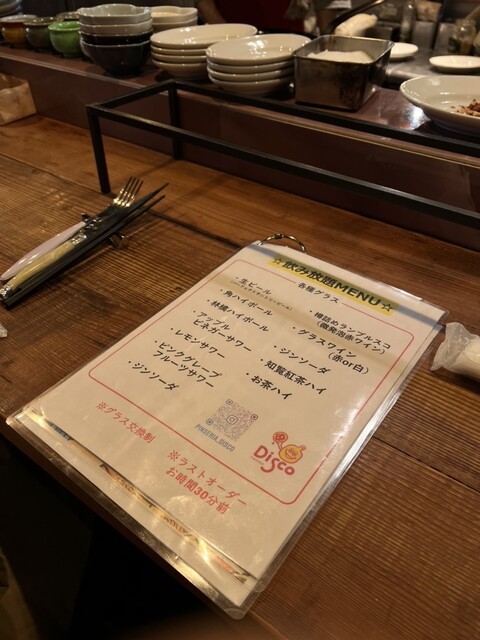 ☆飲み放題MENU☆
各種グラス
・生ビール
・角ハイボール
・林檎ハイボール
・アップル
ビネガーサワー
・レモンサワー
・ピンクグレープ
フルーツサワー
・ジンソーダ
・樽詰めランブルスコ
(微発泡赤ワイン)
・グラスワイン
(赤or白)
・ジンソーダ
・知覧紅茶ハイ
・お茶ハイ
PINSERIA_DISCO
Disco
※グラス交換制
※ラストオーダー
お時間30分前